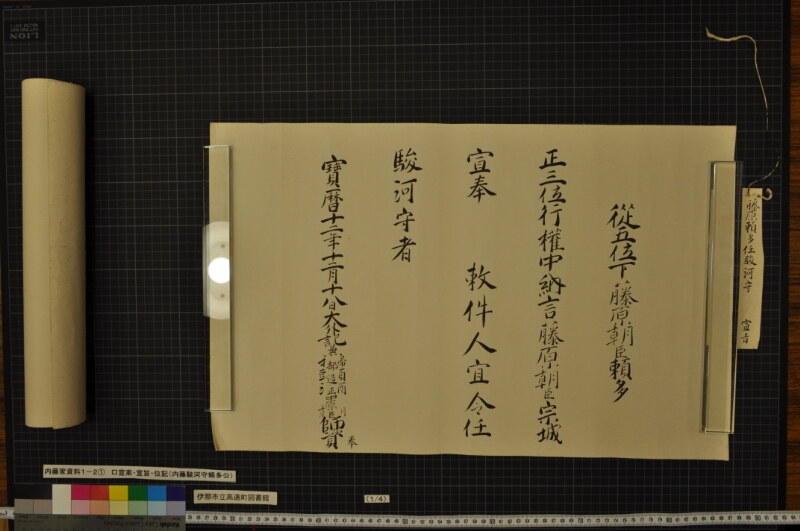 從五位下藤原朝臣頼多
正三位行權中納言藤原朝臣宗城
宣奉　敕件人宜令任
駿河守者
寳暦十二年十二月十八日大外記兼
師資
奉
藤原頼多任駿河守 宣旨
内藤家資料1-2① 口宣案・宣旨・位記(内藤駿河守頼多公)
伊那市立高遠町図書館
(1/4)
LION
Kodak